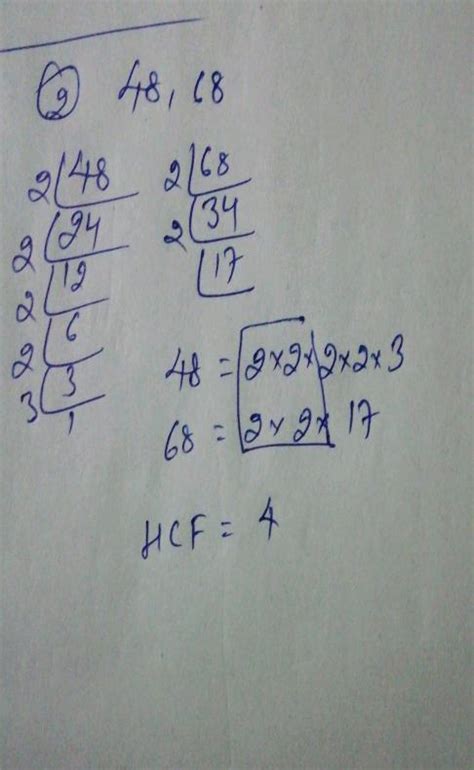 ② 48, 68
2 48 2 68
2 24 2 34
2 12 17
2 6
3 3
1
48 = 2×2×2×2×3
68 = 2×2× 17
HCF = 4